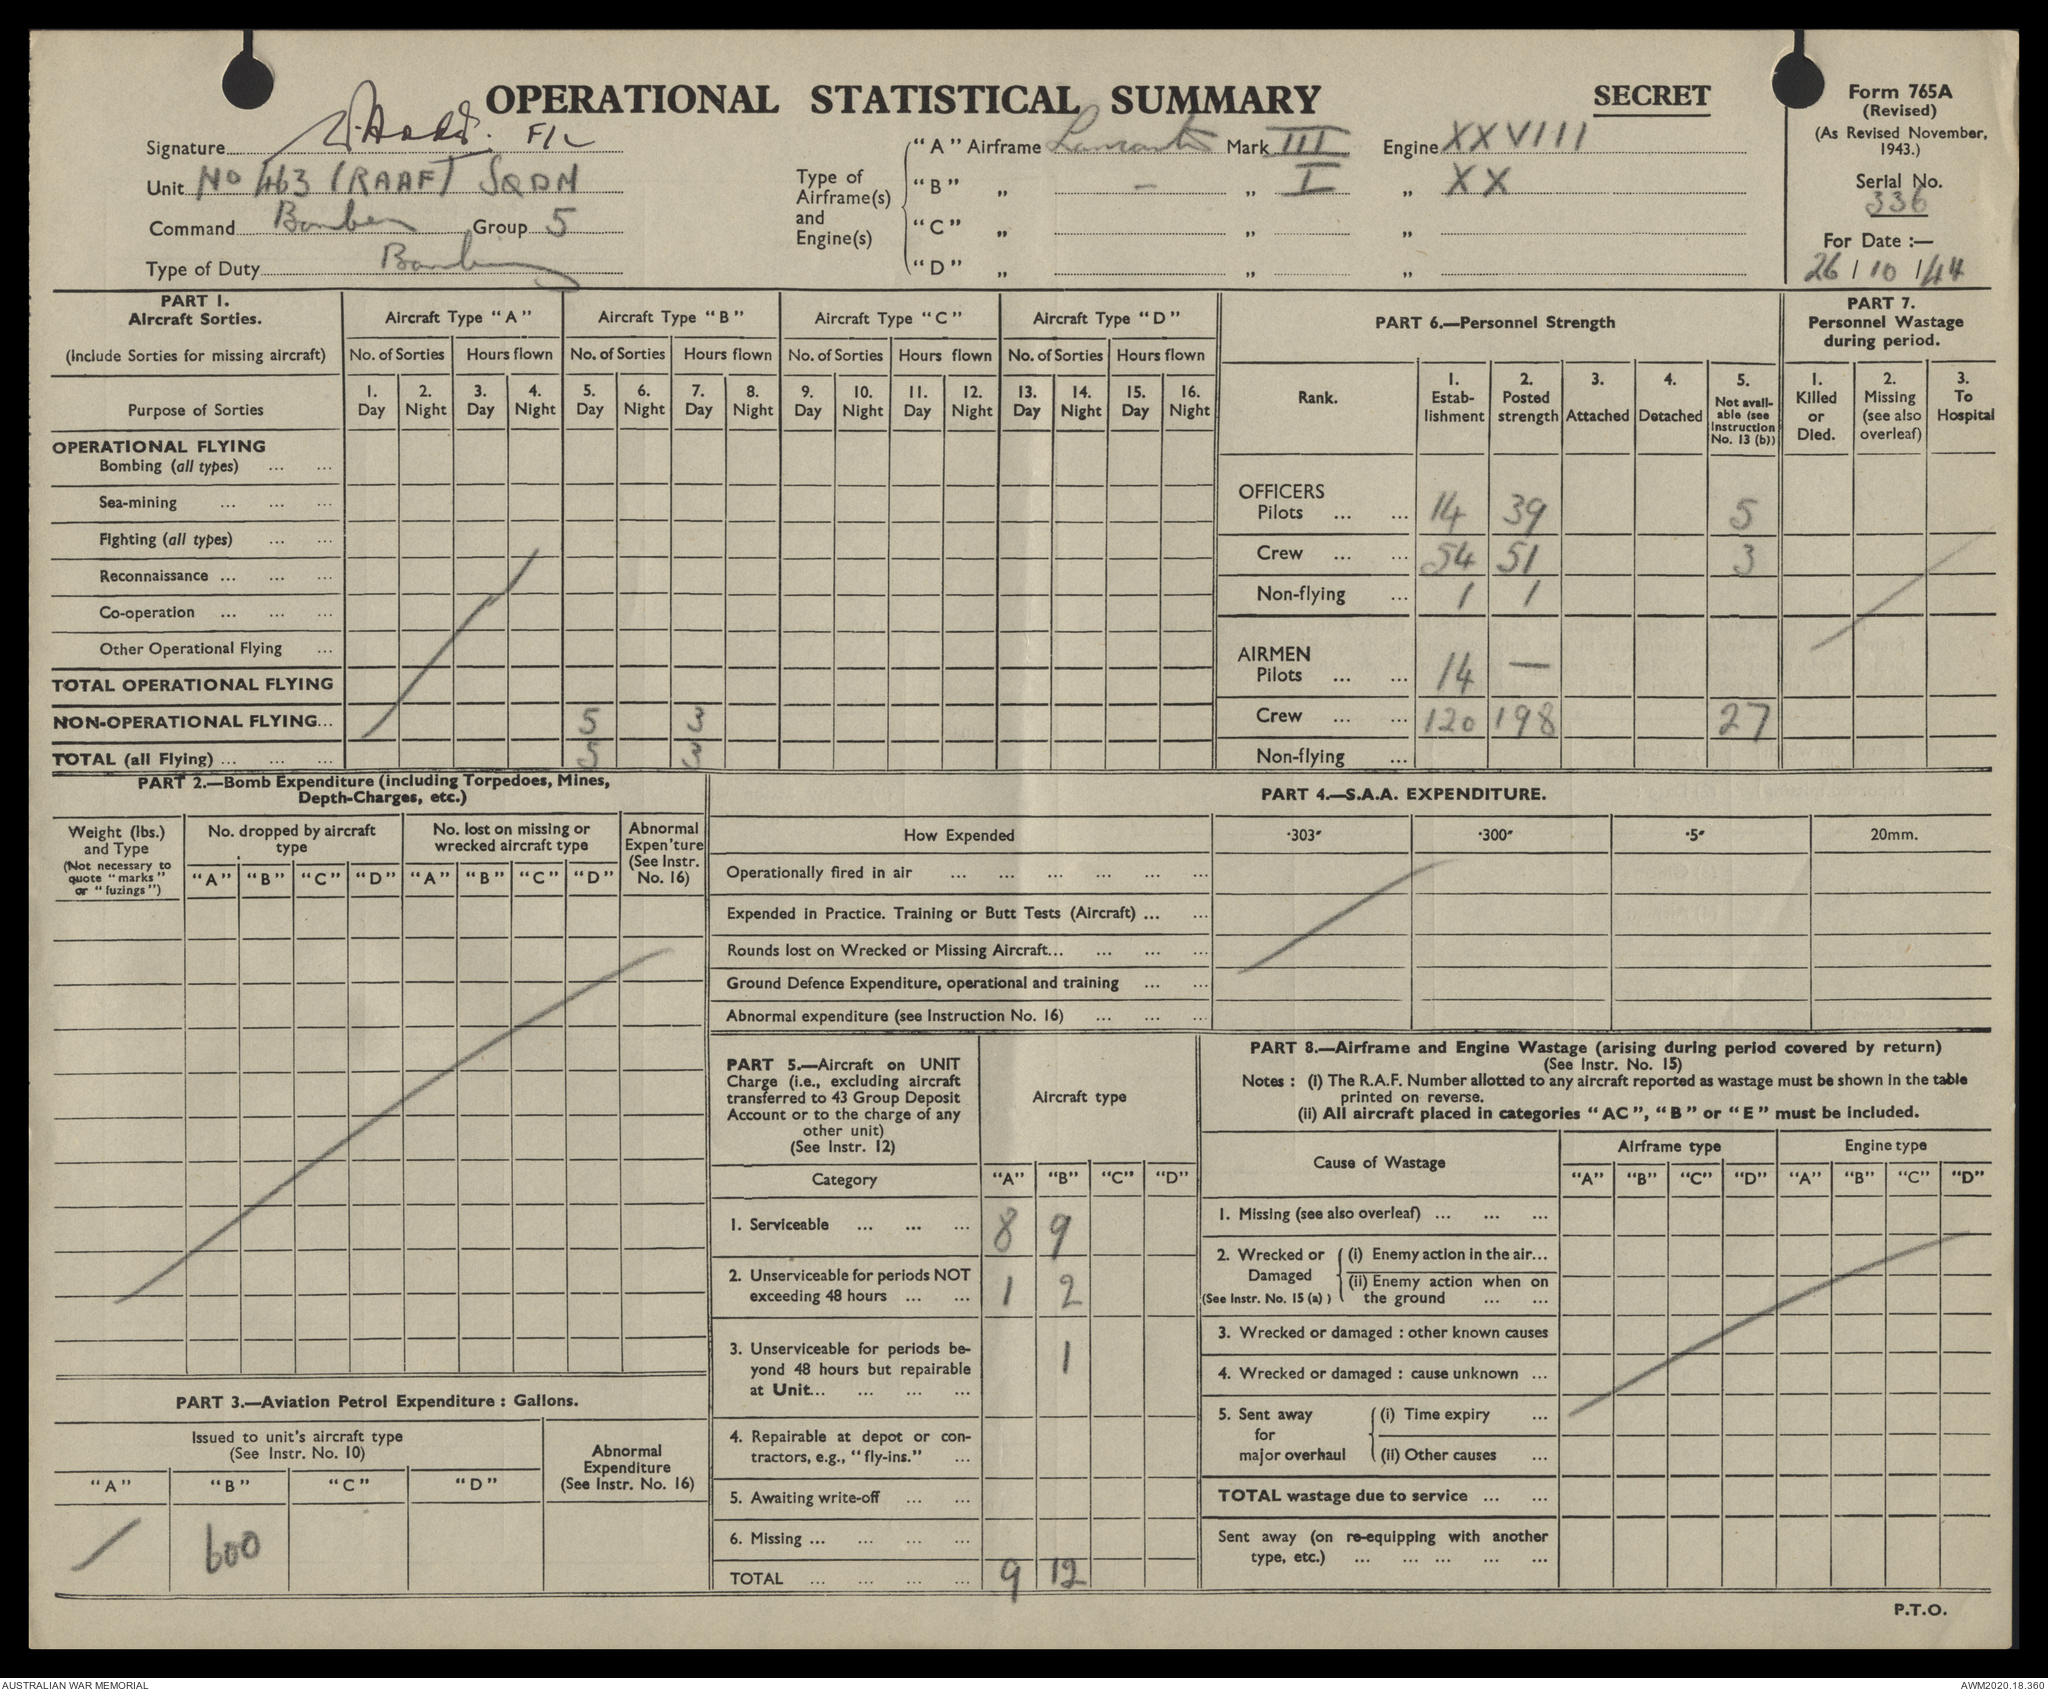 OPERATIONAL STATISTICAL SUMMARY
SECRET
Form 765A
(Revised)
(As Revised November, 1943.)
Serial No.
336
For Date :—
26 / 10 / 44
Signature F/L
Unit No 463 (RAAF) SQDN
Command Bomber Group 5
Type of Duty Bombing
Type of Airframe(s) and Engine(s)
"A" Airframe Lancaster Mark III Engine XXVIII
"B" „ — „ I „ XX
"C" „ „ „
"D" „ „ „
PART 1.
Aircraft Sorties.
(Include Sorties for missing aircraft)
Purpose of Sorties
Aircraft Type "A" Aircraft Type "B" Aircraft Type "C" Aircraft Type "D"
No. of Sorties Hours flown No. of Sorties Hours flown No. of Sorties Hours flown No. of Sorties Hours flown
1. Day 2. Night 3. Day 4. Night 5. Day 6. Night 7. Day 8. Night 9. Day 10. Night 11. Day 12. Night 13. Day 14. Night 15. Day 16. Night
OPERATIONAL FLYING
Bombing (all types) ... ...
Sea-mining ... ... ...
Fighting (all types) ... ...
Reconnaissance ... ... ...
Co-operation ... ... ...
Other Operational Flying ...
TOTAL OPERATIONAL FLYING
NON-OPERATIONAL FLYING... 5 3
TOTAL (all Flying) ... ... ... 5 3
PART 6.—Personnel Strength
Rank.
1. Estab-lishment 2. Posted strength 3. Attached 4. Detached 5. Not avail-able (see Instruction No. 13 (b))
OFFICERS
Pilots ... ... 14 39 5
Crew ... ... 54 51 3
Non-flying ... 1 1
AIRMEN
Pilots ... ... 14 —
Crew ... ... 120 198 27
Non-flying ...
PART 7.
Personnel Wastage during period.
1. Killed or Died. 2. Missing (see also overleaf) 3. To Hospital
PART 2.—Bomb Expenditure (including Torpedoes, Mines,
Depth-Charges, etc.)
Weight (lbs.) and Type
(Not necessary to quote "marks" or "fuzings")
No. dropped by aircraft type
No. lost on missing or wrecked aircraft type
Abnormal Expen'ture (See Instr. No. 16)
"A" "B" "C" "D" "A" "B" "C" "D"
PART 3.—Aviation Petrol Expenditure : Gallons.
Issued to unit's aircraft type
(See Instr. No. 10)
Abnormal Expenditure (See Instr. No. 16)
"A" "B" "C" "D"
600
PART 4.—S.A.A. EXPENDITURE.
How Expended ·303″ ·300″ ·5″ 20mm.
Operationally fired in air ... ... ... ... ... ...
Expended in Practice. Training or Butt Tests (Aircraft) ... ...
Rounds lost on Wrecked or Missing Aircraft... ... ... ...
Ground Defence Expenditure, operational and training ... ...
Abnormal expenditure (see Instruction No. 16) ... ... ...
PART 5.—Aircraft on UNIT
Charge (i.e., excluding aircraft
transferred to 43 Group Deposit
Account or to the charge of any
other unit)
(See Instr. 12)
Aircraft type
Category "A" "B" "C" "D"
1. Serviceable ... ... ... 8 9
2. Unserviceable for periods NOT
exceeding 48 hours ... ... 1 2
3. Unserviceable for periods be-
yond 48 hours but repairable
at Unit... ... ... ... 1
4. Repairable at depot or con-
tractors, e.g., "fly-ins." ...
5. Awaiting write-off ... ...
6. Missing ... ... ... ...
TOTAL ... ... ... ... 9 12
PART 8.—Airframe and Engine Wastage (arising during period covered by return)
(See Instr. No. 15)
Notes : (i) The R.A.F. Number allotted to any aircraft reported as wastage must be shown in the table
printed on reverse.
(ii) All aircraft placed in categories "AC", "B" or "E" must be included.
Cause of Wastage Airframe type Engine type
"A" "B" "C" "D" "A" "B" "C" "D"
1. Missing (see also overleaf) ... ... ...
2. Wrecked or Damaged (See Instr. No. 15 (a) )
(i) Enemy action in the air...
(ii) Enemy action when on
the ground ... ...
3. Wrecked or damaged : other known causes
4. Wrecked or damaged : cause unknown ...
5. Sent away for major overhaul
(i) Time expiry ...
(ii) Other causes ...
TOTAL wastage due to service ... ...
Sent away (on re-equipping with another
type, etc.) ... ... ... ... ...
P.T.O.
AUSTRALIAN WAR MEMORIAL
AWM2020.18.360